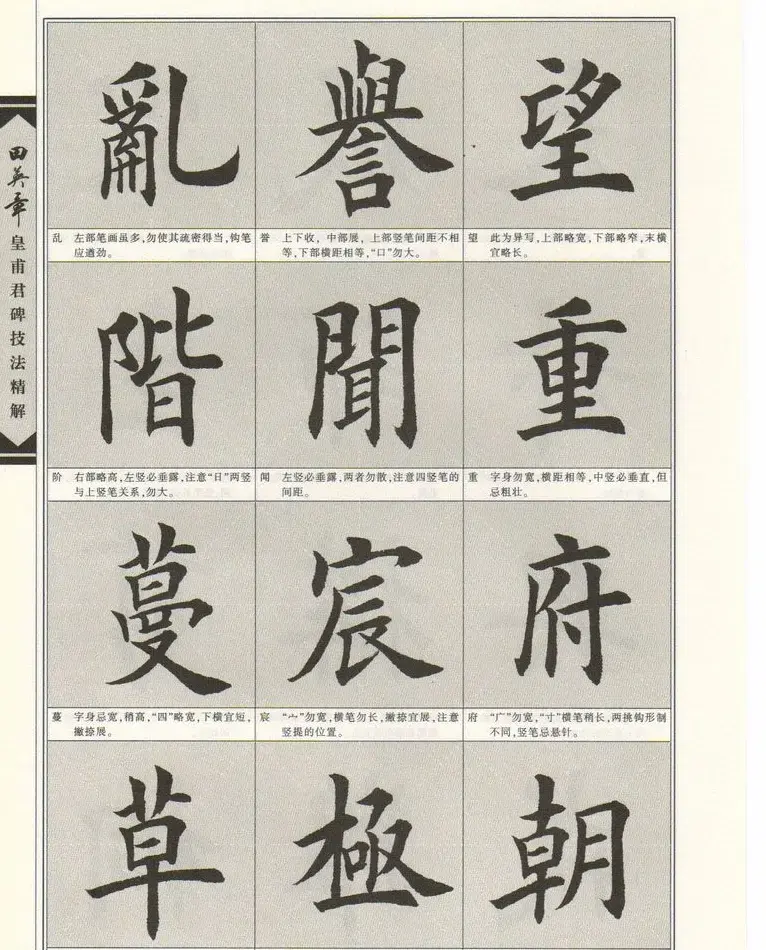 田英章
皇甫君碑技法精解
亂 譽 望
乱 左部笔画虽多,勿使其疏密得当,钩笔
应遒劲。
誉 上下收,中部展,上部竖笔间距不相
等,下部横距相等,“口”勿大。
望 此为异写,上部略宽,下部略窄,末横
宜略长。
階 聞 重
阶 右部略高,左竖必垂露,注意“日”两竖
与上竖笔关系,勿大。
闻 左竖必垂露,两者勿散,注意四竖笔的
间距。
重 字身勿宽,横距相等,中竖必垂直,但
忌粗壮。
蔓 宸 府
蔓 字身忌宽,稍高,“四”略宽,下横宜短,
撇捺展。
宸 “宀”勿宽,横笔勿长,撇捺宜展,注意
竖提的位置。
府 “广”勿宽,“寸”横笔稍长,两挑钩形制
不同,竖笔忌悬针。
草 極 朝